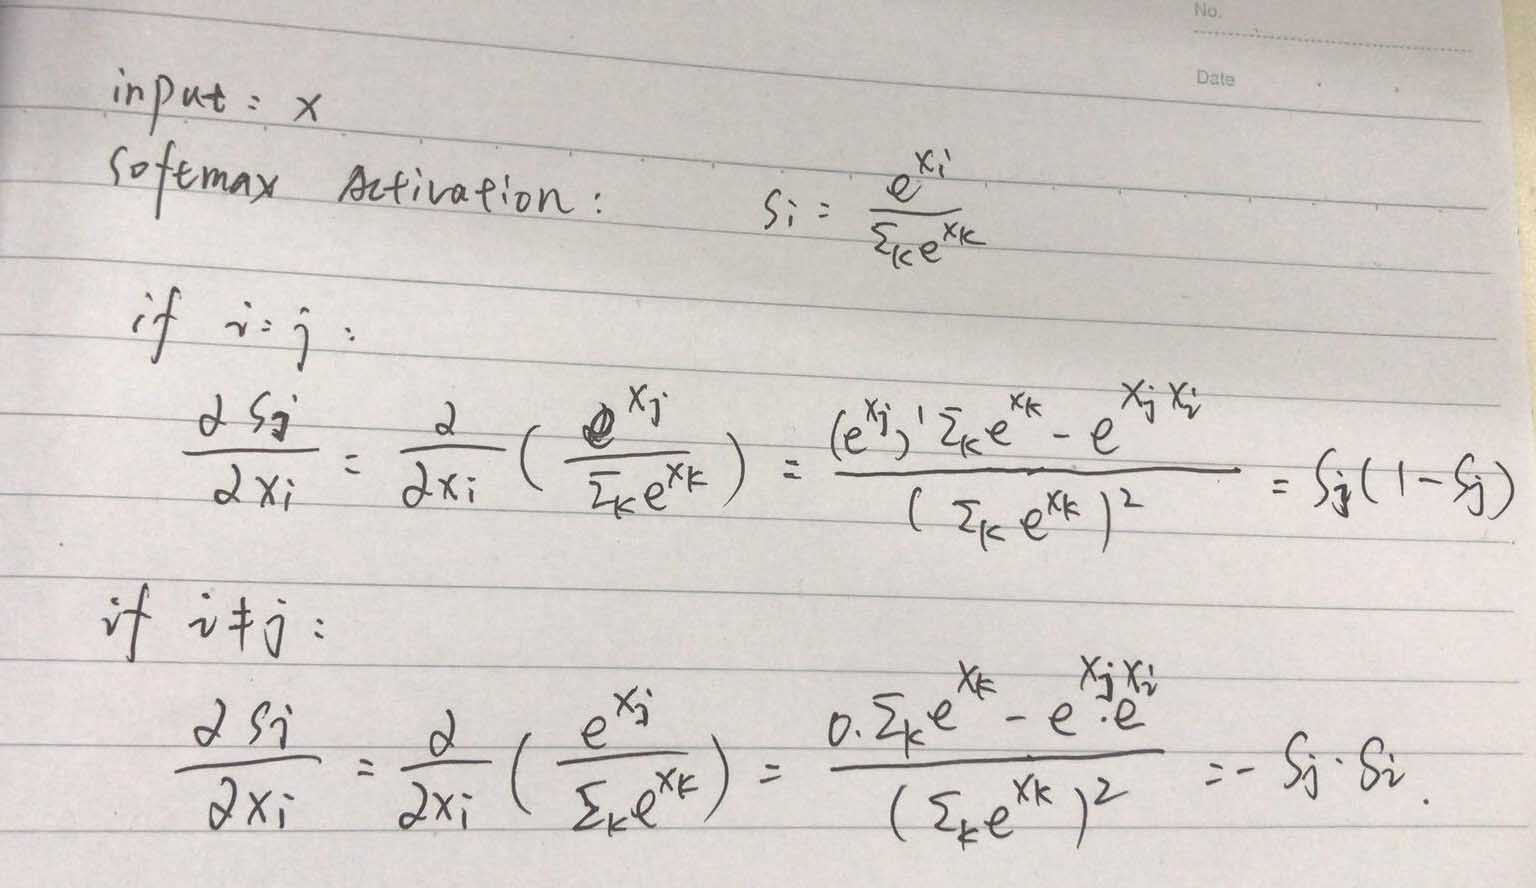 No.
Date
input: x
Softmax Activation: Si = e^{xi} / Σk e^{xk}
if i=j:
∂Sj/∂xi = ∂/∂xi ( e^{xj} / Σk e^{xk} ) = ((e^{xj})' Σk e^{xk} - e^{xj xi}) / (Σk e^{xk})^2 = Sj(1-Sj)
if i≠j:
∂Sj/∂xi = ∂/∂xi ( e^{xj} / Σk e^{xk} ) = (0·Σk e^{xk} - e^{xj}·e^{xi}) / (Σk e^{xk})^2 = -Sj·Si.